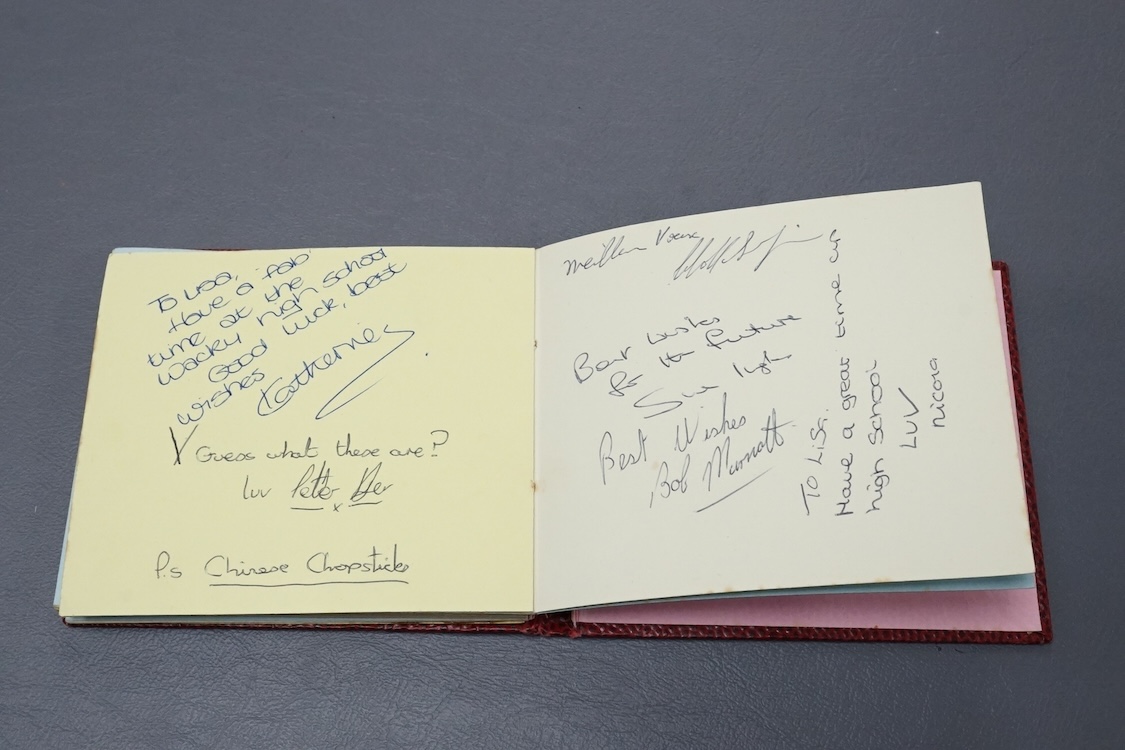 To Lisa,
Have a 'fab'
time at the
wacky high school
Good luck, best
wishes
Catherine
Guess what these are?
luv Petter
P.s Chinese Chopsticks
Best wishes
for the future
Sue
Best Wishes
Bob Marriott
To Lisa.
Have a great time at
high School
LUV
nicola